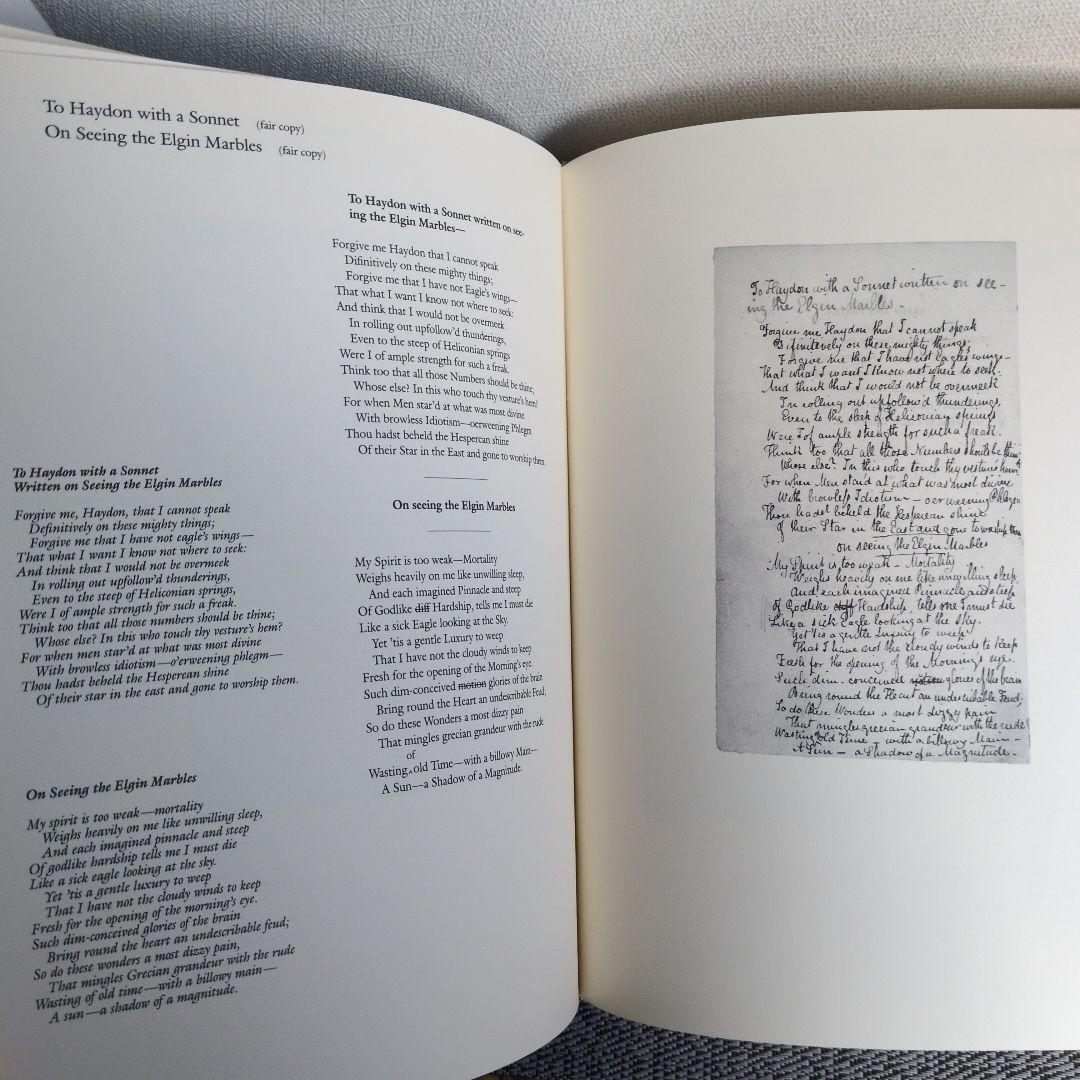 To Haydon with a Sonnet (fair copy)
On Seeing the Elgin Marbles (fair copy)
To Haydon with a Sonnet
Written on Seeing the Elgin Marbles
Forgive me, Haydon, that I cannot speak
Definitively on these mighty things;
Forgive me that I have not eagle's wings—
That what I want I know not where to seek:
And think that I would not be overmeek
In rolling out upfollow'd thunderings,
Even to the steep of Heliconian springs,
Were I of ample strength for such a freak.
Think too that all those numbers should be thine;
Whose else? In this who touch thy vesture's hem?
For when men star'd at what was most divine
With browless idiotism—o'erweening phlegm—
Thou hadst beheld the Hesperean shine
Of their star in the east and gone to worship them.
On Seeing the Elgin Marbles
My spirit is too weak—mortality
Weighs heavily on me like unwilling sleep,
And each imagined pinnacle and steep
Of godlike hardship tells me I must die
Like a sick eagle looking at the sky.
Yet 'tis a gentle luxury to weep
That I have not the cloudy winds to keep
Fresh for the opening of the morning's eye.
Such dim-conceived glories of the brain
Bring round the heart an undescribable feud;
So do these wonders a most dizzy pain,
That mingles Grecian grandeur with the rude
Wasting of old time—with a billowy main—
A sun—a shadow of a magnitude.
To Haydon with a Sonnet written on see-
ing the Elgin Marbles—
Forgive me Haydon that I cannot speak
Difinitively on these mighty things;
Forgive me that I have not Eagle's wings—
That what I want I know not where to seek:
And think that I would not be overmeek
In rolling out upfollow'd thunderings,
Even to the steep of Heliconian springs
Were I of ample strength for such a freak.
Think too that all those Numbers should be thine;
Whose else? In this who touch thy vesture's hem?
For when Men star'd at what was most divine
With browless Idiotism—oerweening Phlegm
Thou hadst beheld the Hesperean shine
Of their Star in the East and gone to worship them
On seeing the Elgin Marbles
My Spirit is too weak—Mortality
Weighs heavily on me like unwilling sleep,
And each imagined Pinnacle and steep
Of Godlike diff Hardship, tells me I must die
Like a sick Eagle looking at the Sky.
Yet 'tis a gentle Luxury to weep
That I have not the cloudy winds to keep
Fresh for the opening of the Morning's eye.
Such dim-conceived motion glories of the brain
Bring round the Heart an undescribable Feud,
So do these Wonders a most dizzy pain
That mingles grecian grandeur with the rude
of
Wasting‸old Time—with a billowy Main—
A Sun—a Shadow of a Magnitude.
To Haydon with a Sonnet written on see-
ing the Elgin Marbles -
Forgive me Haydon that I cannot speak
Difinitively on these mighty things;
Forgive me that I have not Eagles wings—
That what I want I know not where to seek.
And think that I would not be overmeek
In rolling out upfollow'd thunderings,
Even to the steep of Heliconian springs
Were I of ample strength for such a freak.
Think too that all those Numbers should be thine
Whose else? In this who touch thy vesture's hem?
For when Men star'd at what was most divine
With browless Idiotism — oerweening Phlegm
Thou hadst beheld the Hesperean shine
of their Star in the East and gone to worship them
on seeing the Elgin Marbles
My Spirit is too weak — Mortality
Weighs heavily on me like unwilling sleep
And each imagined Pinnacle and steep
of Godlike diff Hardship, tells me I must die
Like a sick Eagle looking at the Sky.
Yet 'tis a gentle Luxury to weep
That I have not the cloudy winds to keep
Fresh for the opening of the Morning's eye.
Such dim-conceived motion glories of the brain
Bring round the Heart an undescribable Feud,
So do these Wonders a most dizzy pain
That mingles grecian grandeur with the rude
Wasting of old Time — with a billowy Main—
A Sun — a Shadow of a Magnitude.